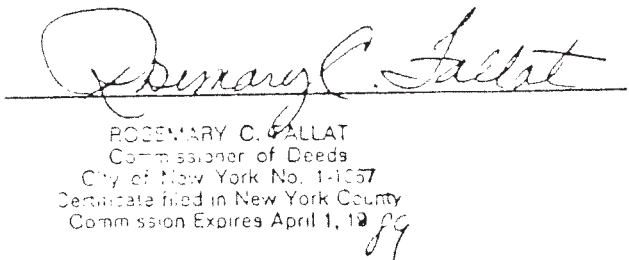 Rosemary C. Fallat
ROSEMARY C. FALLAT
Commissioner of Deeds
City of New York No. 1-1367
Certificate filed in New York County
Commission Expires April 1, 1989